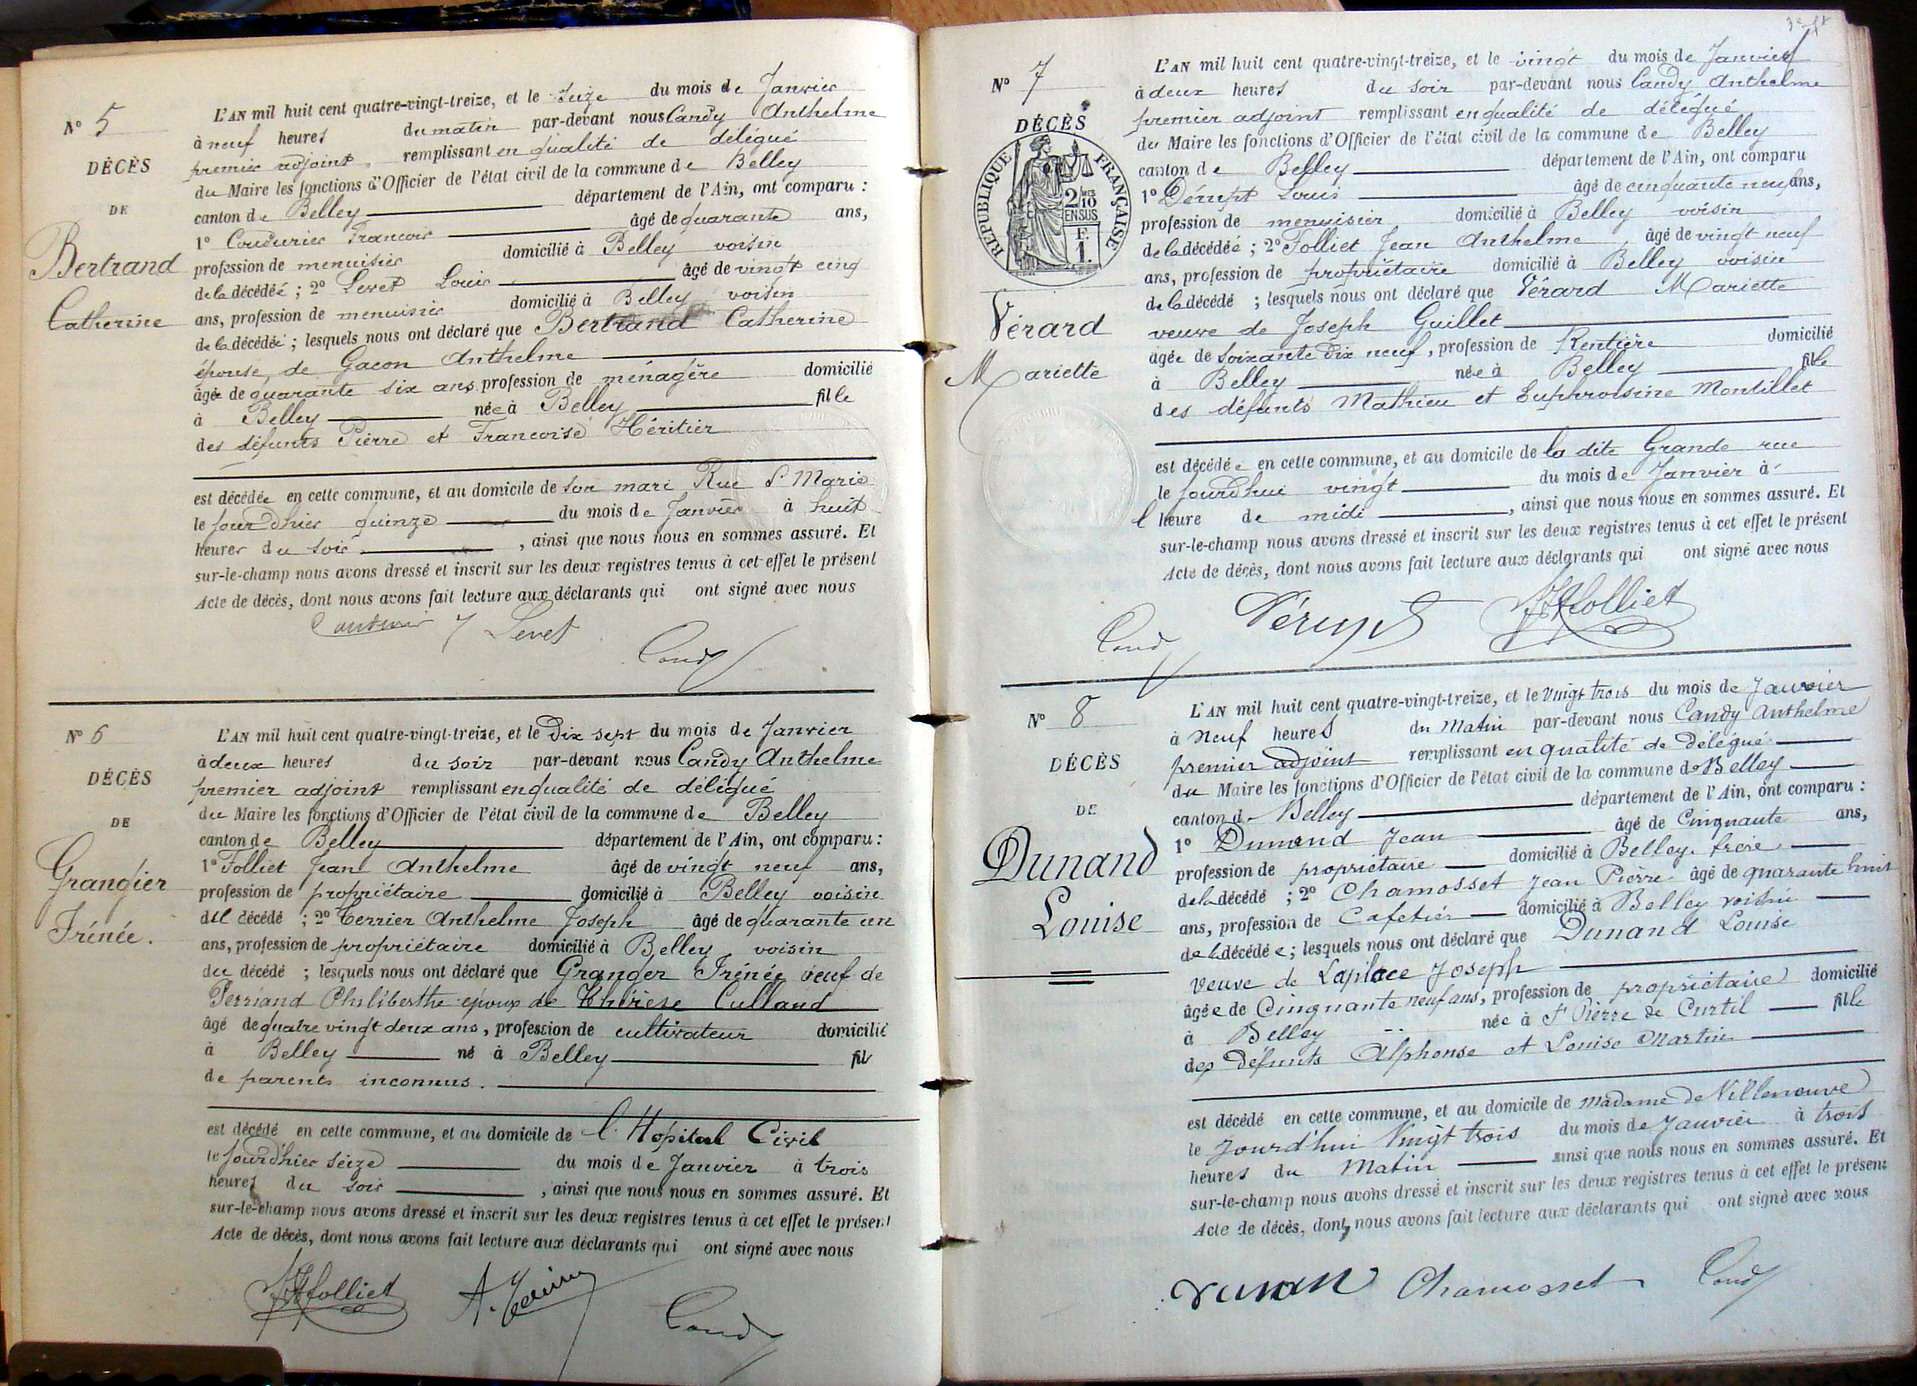 Nº 5
DÉCÈS
DE
Bertrand
Catherine
L'AN mil huit cent quatre-vingt-treize, et le seize du mois de Janvier
à neuf heures du matin par-devant nous Candy Anthelme
premier adjoint remplissant en qualité de délégué
du Maire les fonctions d'Officier de l'état civil de la commune de Belley
canton de Belley département de l'Ain, ont comparu :
1º Coudurier Francois âgé de quarante ans,
profession de menuisier domicilié à Belley voisin
de la décédée ; 2º Levet Louis âgé de vingt cinq
ans, profession de menuisier domicilié à Belley voisin
de la décédée ; lesquels nous ont déclaré que Bertrand Catherine
épouse de Gacon Anthelme
âgée de quarante six ans profession de ménagère domicilié
à Belley née à Belley fille
des défunts Pierre et Francoise Héritier
est décédée en cette commune, et au domicile de son mari Rue St Marie
le jour d'hier quinze du mois de Janvier à huit
heures du soir , ainsi que nous nous en sommes assuré. Et
sur-le-champ nous avons dressé et inscrit sur les deux registres tenus à cet effet le présent
Acte de décès, dont nous avons fait lecture aux déclarants qui ont signé avec nous
Levet
Candy
Nº 6
DÉCÈS
DE
Grangier
Irénée.
L'AN mil huit cent quatre-vingt-treize, et le Dix sept du mois de Janvier
à deux heures du soir par-devant nous Candy Anthelme
premier adjoint remplissant en qualité de délégué
du Maire les fonctions d'Officier de l'état civil de la commune de Belley
canton de Belley département de l'Ain, ont comparu :
1º Folliet Jean Anthelme âgé de vingt neuf ans,
profession de propriétaire domicilié à Belley voisin
du décédé ; 2º Terrier Anthelme Joseph âgé de quarante un
ans, profession de propriétaire domicilié à Belley voisin
du décédé ; lesquels nous ont déclaré que Granger Irénée veuf de
Perriand Philiberthe époux de Thérèse Culland
âgé de quatre vingt deux ans, profession de cultivateur domicilié
à Belley né à Belley fils
de parents inconnus.
est décédé en cette commune, et au domicile de l'Hopital Civil
le jour d'hier seize du mois de Janvier à trois
heures du soir , ainsi que nous nous en sommes assuré. Et
sur-le-champ nous avons dressé et inscrit sur les deux registres tenus à cet effet le présent
Acte de décès, dont nous avons fait lecture aux déclarants qui ont signé avec nous
Folliet
Candy
Nº 7
DÉCÈS
RÉPUBLIQUE FRANÇAISE
2/10
EN SUS
F.
1.
Vérard
Mariette
L'AN mil huit cent quatre-vingt-treize, et le vingt du mois de Janvier
à deux heures du soir par-devant nous Candy Anthelme
premier adjoint remplissant en qualité de délégué
du Maire les fonctions d'Officier de l'état civil de la commune de Belley
canton de Belley département de l'Ain, ont comparu
1º Dérupt Louis âgé de cinquante neuf ans,
profession de menuisier domicilié à Belley voisin
de la décédée ; 2º Folliet Jean Anthelme, âgé de vingt neuf
ans, profession de propriétaire domicilié à Belley voisin
de la décédé ; lesquels nous ont déclaré que Vérard Mariette
veuve de Joseph Guillet
âgée de soixante dix neuf, profession de Rentière domicilié
à Belley née à Belley fille
des défunts Mathieu et Euphroisine Montillet
est décédée en cette commune, et au domicile de la dite Grande rue
le jourd'hui vingt du mois de Janvier à
l heure de midi , ainsi que nous nous en sommes assuré. Et
sur-le-champ nous avons dressé et inscrit sur les deux registres tenus à cet effet le présent
Acte de décès, dont nous avons fait lecture aux déclarants qui ont signé avec nous
Candy Dérupt Folliet
Nº 8
DÉCÈS
DE
Dunand
Louise
L'AN mil huit cent quatre-vingt-treize, et le Vingt trois du mois de Janvier
à Neuf heures du Matin par-devant nous Candy Anthelme
premier adjoint remplissant en qualité de Délégué
du Maire les fonctions d'Officier de l'état civil de la commune de Belley
canton de Belley département de l'Ain, ont comparu :
1º Dunand Jean âgé de Cinquante ans,
profession de propriétaire domicilié à Belley frère
de la décédé ; 2º Chamosset Jean Pierre âgé de quarante huit
ans, profession de Cafetier domicilié à Belley voisin
de la décédée ; lesquels nous ont déclaré que Dunand Louise
veuve de Laplace Joseph
âgée de Cinquante neuf ans, profession de propriétaire domicilié
à Belley née à St Pierre de Curtil fille
des défunts Alphonse et Louise Martin
est décédé en cette commune, et au domicile de madame de Villeneuve
le Jourd'hui Vingt trois du mois de Janvier à trois
heures du Matin ainsi que nous nous en sommes assuré. Et
sur-le-champ nous avons dressé et inscrit sur les deux registres tenus à cet effet le présent
Acte de décès, dont nous avons fait lecture aux déclarants qui ont signé avec nous
Chamosset Candy